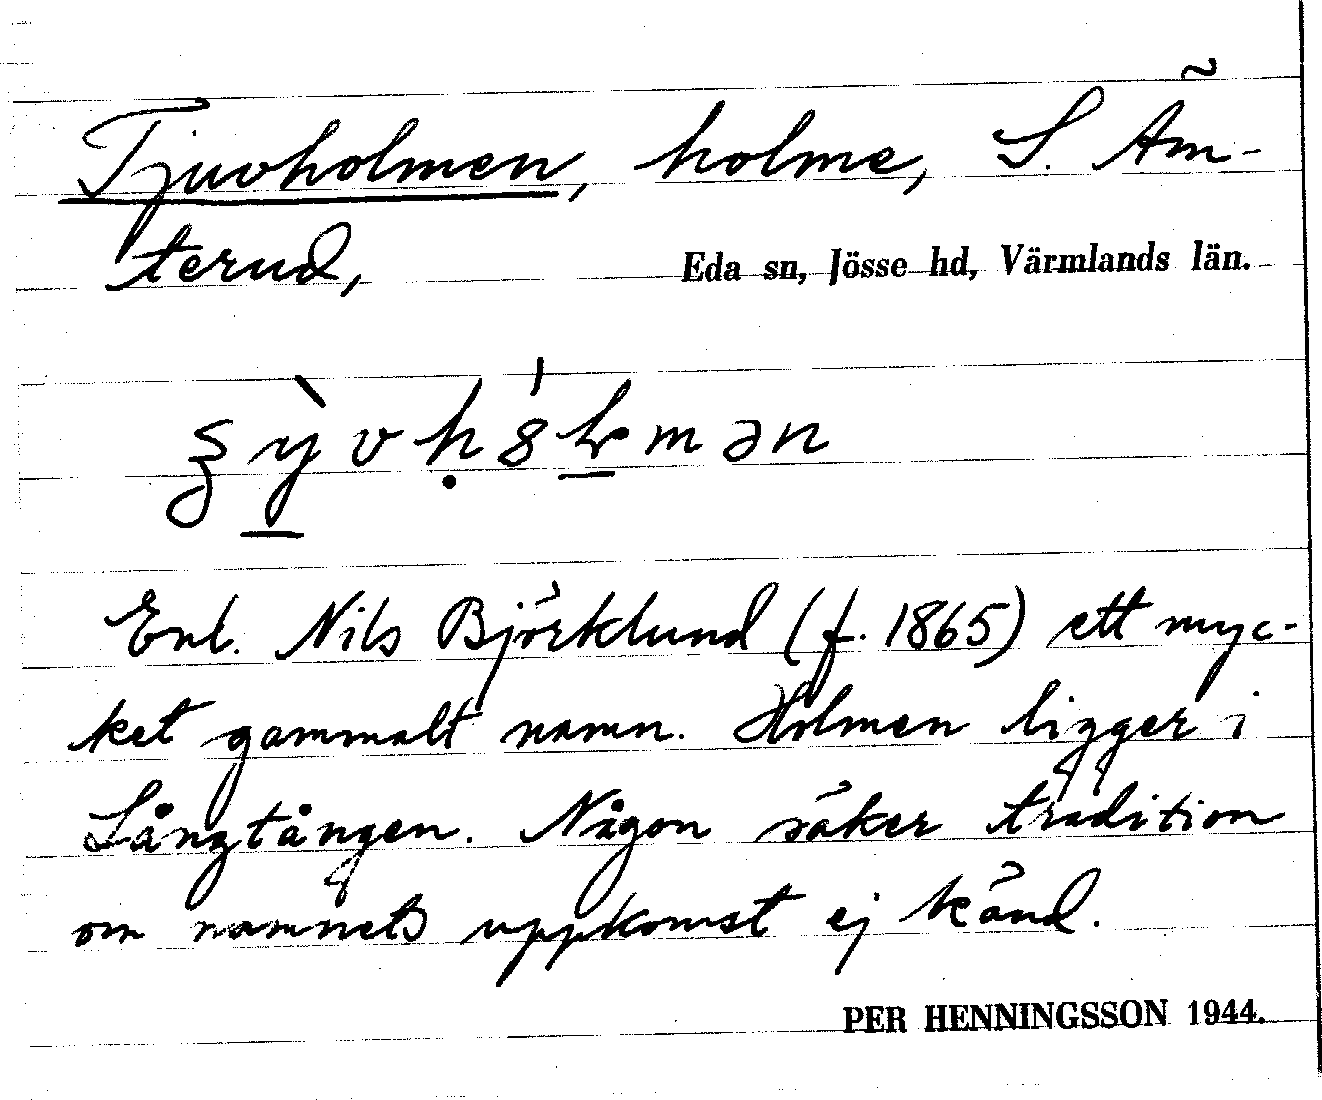 Tjuvholmen, holme, S. Äm-
terud,
Eda sn, Jösse hd, Värmlands län.
Enl. Nils Björklund (f. 1865) ett myc-
ket gammalt namn. Holmen ligger i
Långtången. Någon säker tradition
om namnets uppkomst ej känd.
PER HENNINGSSON 1944.